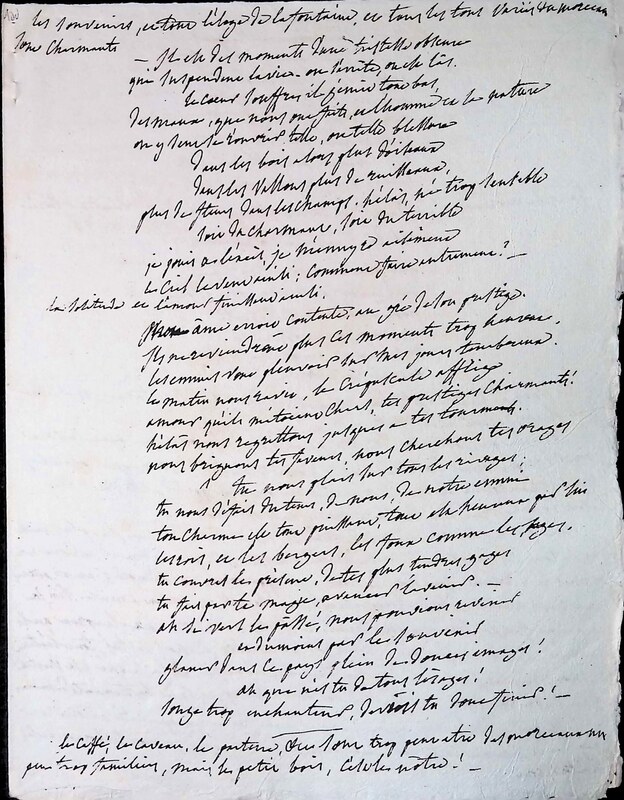 les souvenirs, et tout l'éloge de la fontaine, et tous les tons variés du morceau
sont charmants
— Il est des moments d'une tristesse obscure
qui suspendent la vie. on l'évite, on est las.
le coeur souffre, il gémit tout bas,
des maux, que nous ont faits, et l'homme et la nature
on y sent se rouvrir telle, ou telle blessure
dans les bois alors plus d'oiseaux
dans les vallons plus de ruisseaux,
plus de fleurs dans les champs. hélas, né trop sensible
loin du charmant, loin du terrible
je jouis à l'écart, je m'ennuye
le Ciel le veut ainsi; Comment faire autrement? —
la solitude et l'amour finissent ainsi.
âme erroit contente, au gré de son prestige.
Ils ne reviendront plus ces moments trop heureux
les ennuis vont pleuvoir sur mes jours
le matin nous ravit, le Crépuscule afflige
amour qu'ils m'étoient Chers, tes prestiges charmants!
hélas nous regrettons jusques à tes tourments.
nous briguons tes faveurs, nous cherchons tes orages
tu nous plais sur tous les rivages;
tu nous défais du tems, de nous, de notre ennui
ton charme est tout puissant, tout est heureux par lui
les rois, et les bergers, les foux comme les sages.
tu couvres le présent, de tes plus tendres gages
tu fais par ta magie, avancer l'avenir. —
ah si vers le passé, nous pouvions revenir
endurmis par le souvenir
glaner dans ce pays plein de douces images!
ah que n'es tu de tous les ages!
songe trop enchanteur, devrois tu donc finir! —
le Caffé, le Caveau, le parterre, sont trop peut être des morceaux
un peu trop familiers, mais le petit bois, est le nôtre! —